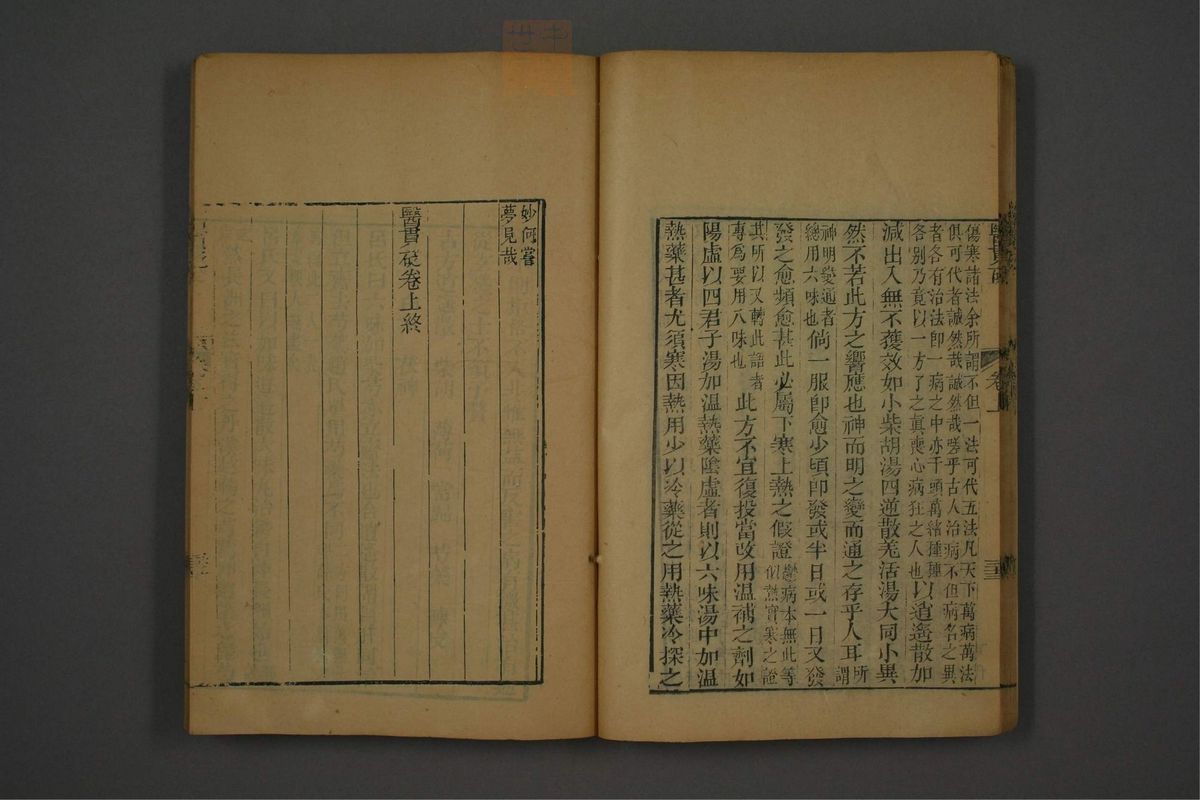 傷寒諸法余所謂不但一法可代五法凡天下萬病萬法
俱可代者誠然哉誠然哉嗟乎古人治病不但病名之異
者各有治法即一病之中亦千頭萬緒種種
各别乃竟以一方了之眞喪心病狂之人也以逍遙散加
減出入無不獲效如小柴胡湯四逆散羌活湯大同小異
然不若此方之響應也神而明之變而通之存乎人耳所謂
神明變通者
總用六味也倘一服卽愈少頃卽發或半日或一日又發
發之愈頻愈甚此必屬下寒上熱之假證鬱病本無此等
似熱實寒之證
其所以又轉此語者
專爲要用八味也此方不宜復投當改用温補之劑如
陽虛以四君子湯加温熱藥陰虛者則以六味湯中加温
熱藥甚者尤須寒因熱用少以冷藥從之用熱藥冷探之
妙何嘗
夢見哉
醫貫砭卷上終
卷上